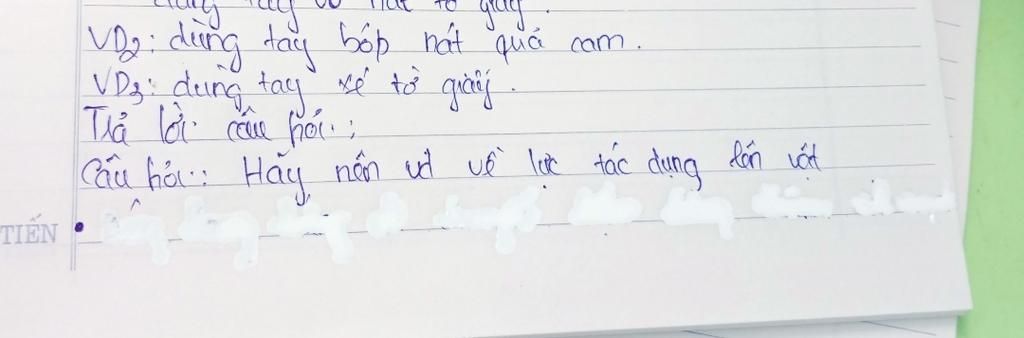 tay vò nát tờ giấy.
VD2: dùng tay bóp nát quả cam.
VD3: dùng tay xé tờ giấy.
Trả lời câu hỏi:
Câu hỏi: Hãy nêu vd về lực tác dụng lên vật
TIẾN